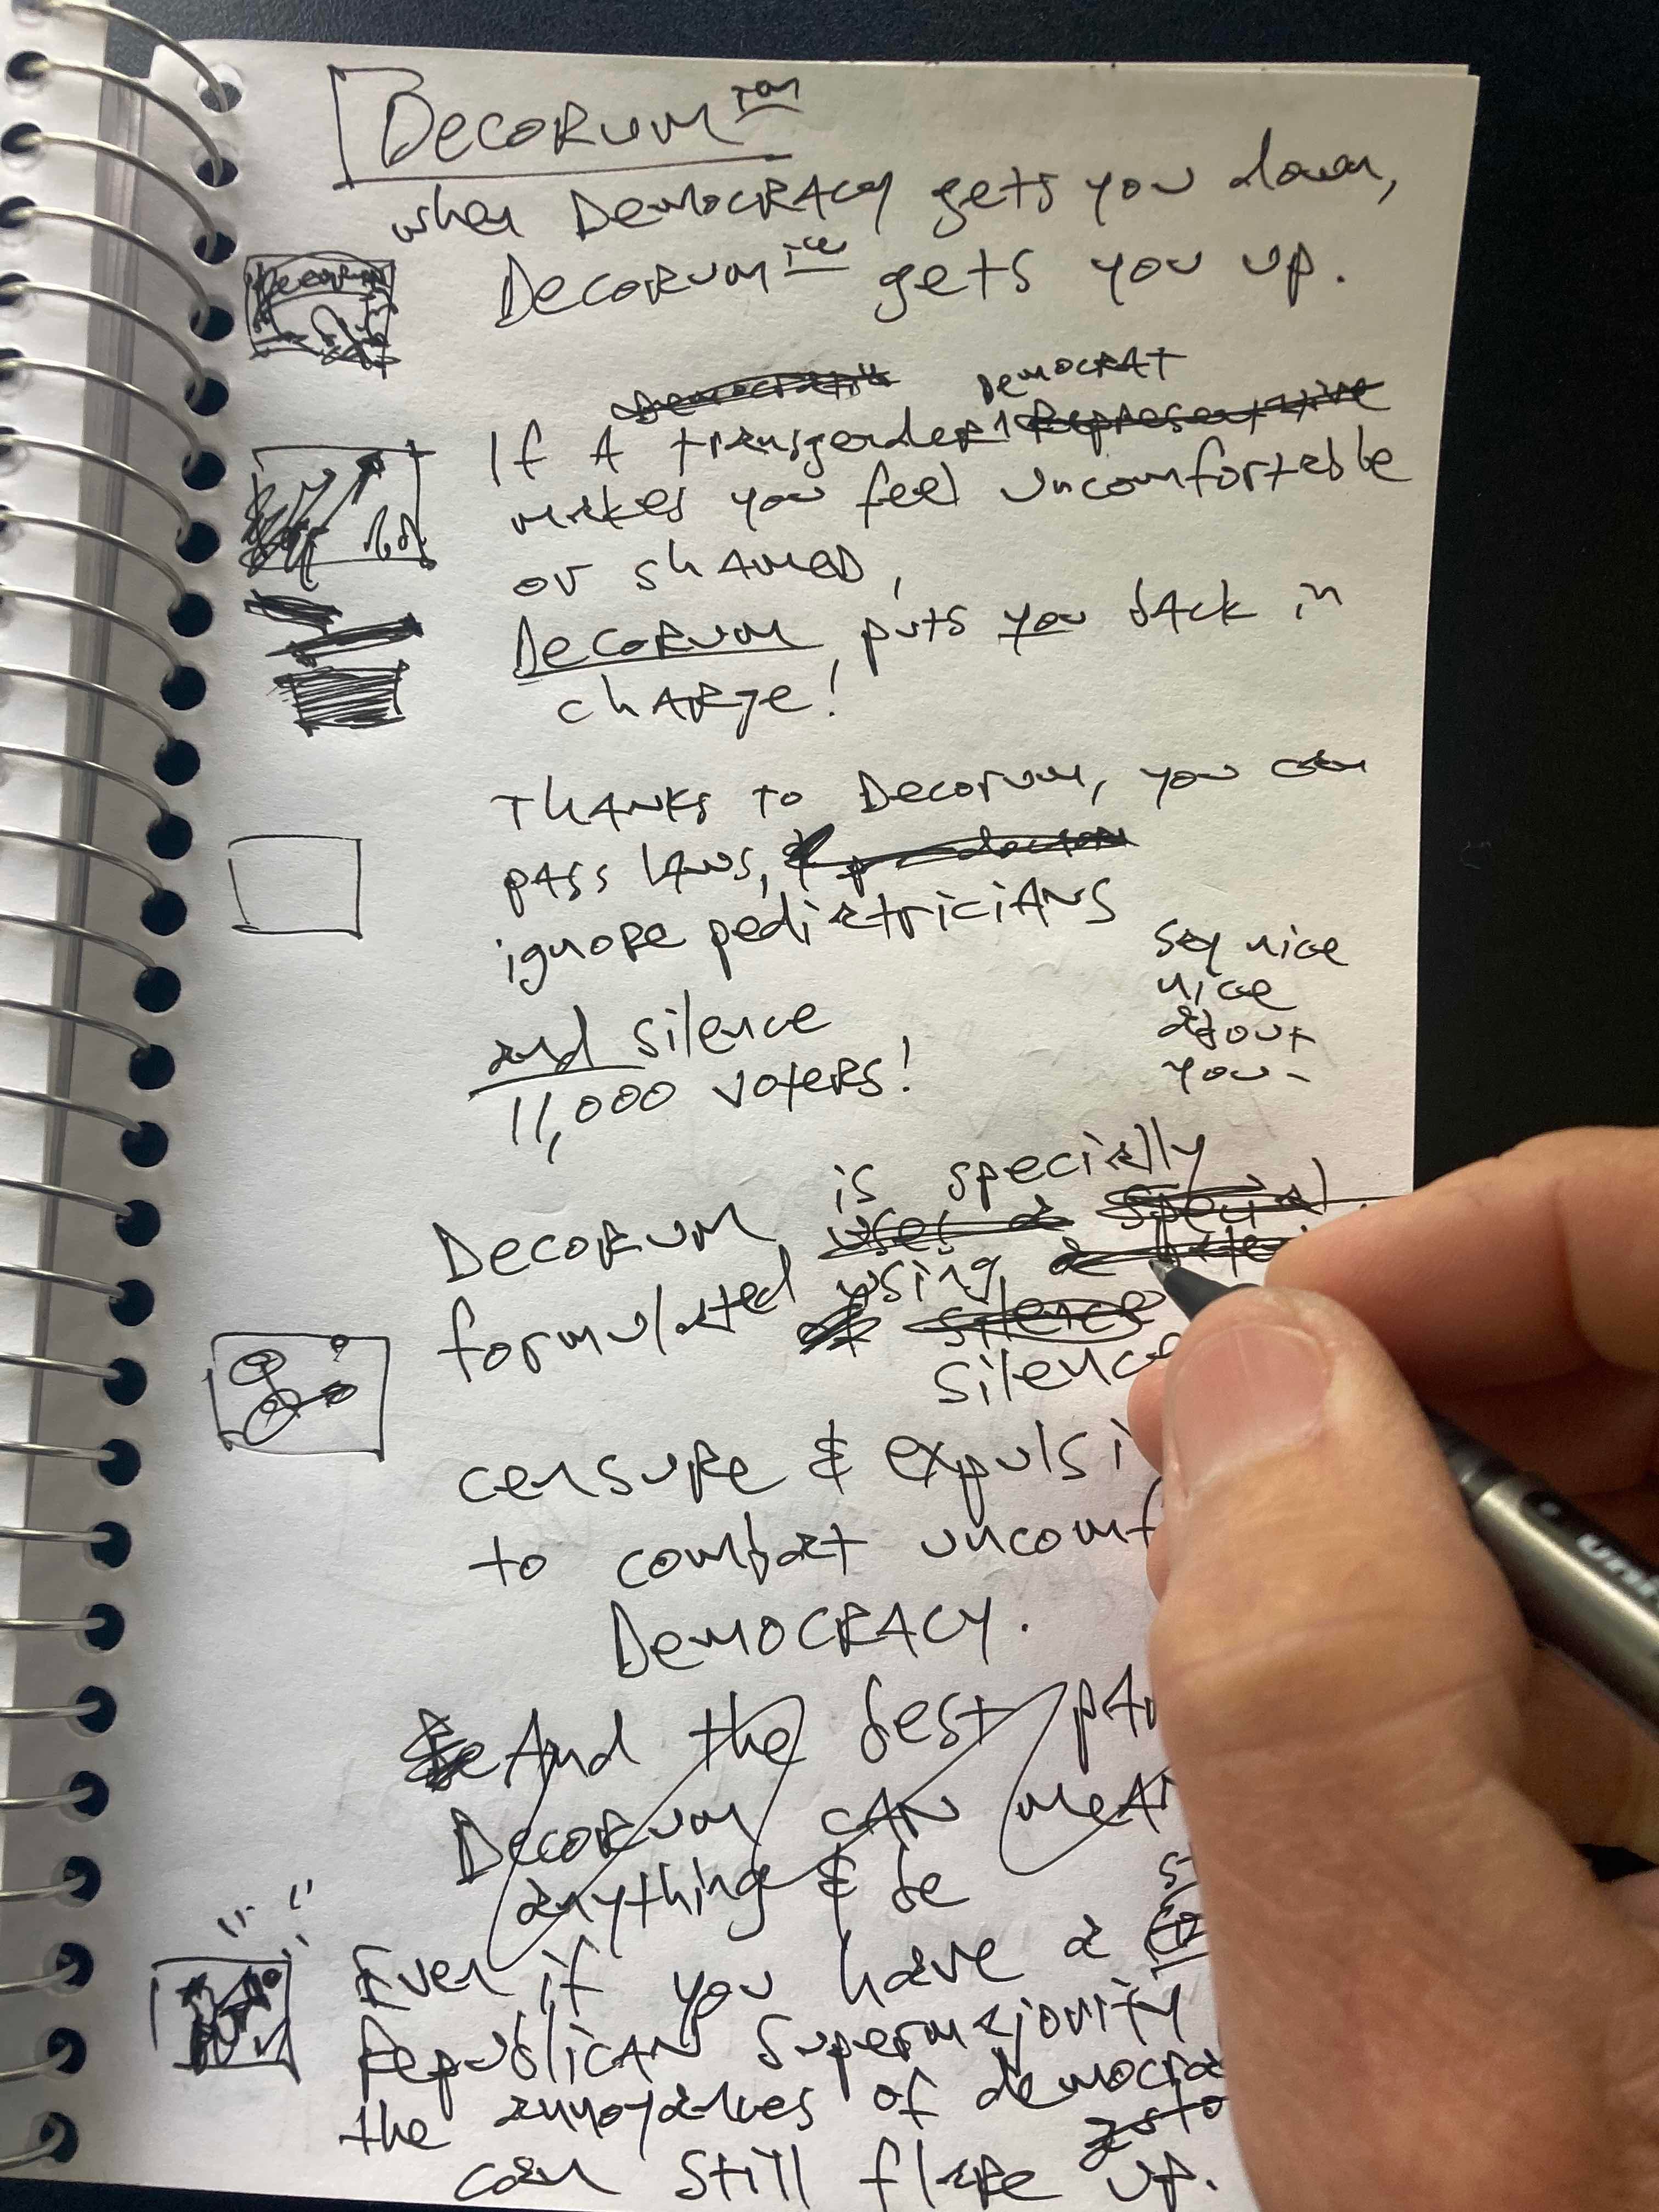 DECORUM™
when DEMOCRACY gets you down,
DECORUM™ gets you up.
Decorum
DEMOCRAT
If A transgender Representative
makes you feel uncomfortable
or shamed,
DECORUM puts you back in
chARge!
THANKS to Decorum, you can
pass laws,
ignore pediatricians
say nice
nice
about
you-
and silence
11,000 voters!
is specially
DECORUM uses a special
formulated using a
silence
silence
censure & expulsi
to combat uncomf
DEMOCRACY.
And the best par
DECORUM CAN mean
anything & be
Even if you have a
Republican supermajority
the annoyances of democra
can still flare up.